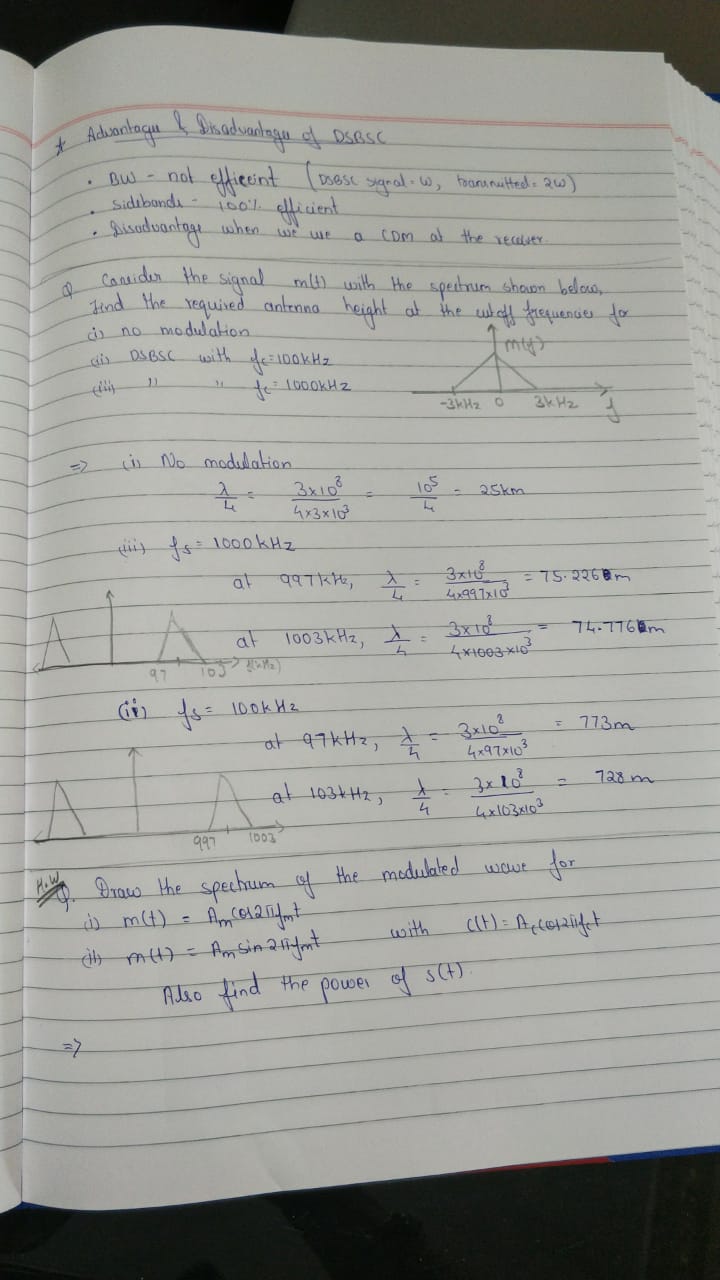 * Advantage & Disadvantage of DSBSC
• BW - not efficeint (DSBSC signal = W, transmitted = 2W)
• Sidebands - 100% efficient
• Disadvantage when we use a CDM at the receiver.
Q Consider the signal m(t) with the spectrum shown below,
Find the required antenna height at the cutoff frequencies for
(i) no modulation
(ii) DSBSC with fc = 100kHz
(iii) " " fc = 1000kHz
M(f)
-3kHz 0 3kHz f
=> (i) No modulation
λ/4 = 3×10⁸/4×3×10³ = 10⁵/4 = 25km
(iii) fs = 1000kHz
at 997kHz, λ/4 = 3×10⁸/4×997×10³ = 75.226m
at 1003kHz, λ/4 = 3×10⁸/4×1003×10³ = 74.776m
97 103 f(kHz)
(ii) fs = 100kHz
at 97kHz, λ/4 = 3×10⁸/4×97×10³ = 773m
at 103kHz, λ/4 = 3×10⁸/4×103×10³ = 728m
997 1003
H.W
Q. Draw the spectrum of the modulated wave for
i) m(t) = Am cos2πfmt
ii) m(t) = Am sin2πfmt with c(t) = Ac cos2πfct
Also find the power of s(t).
=>